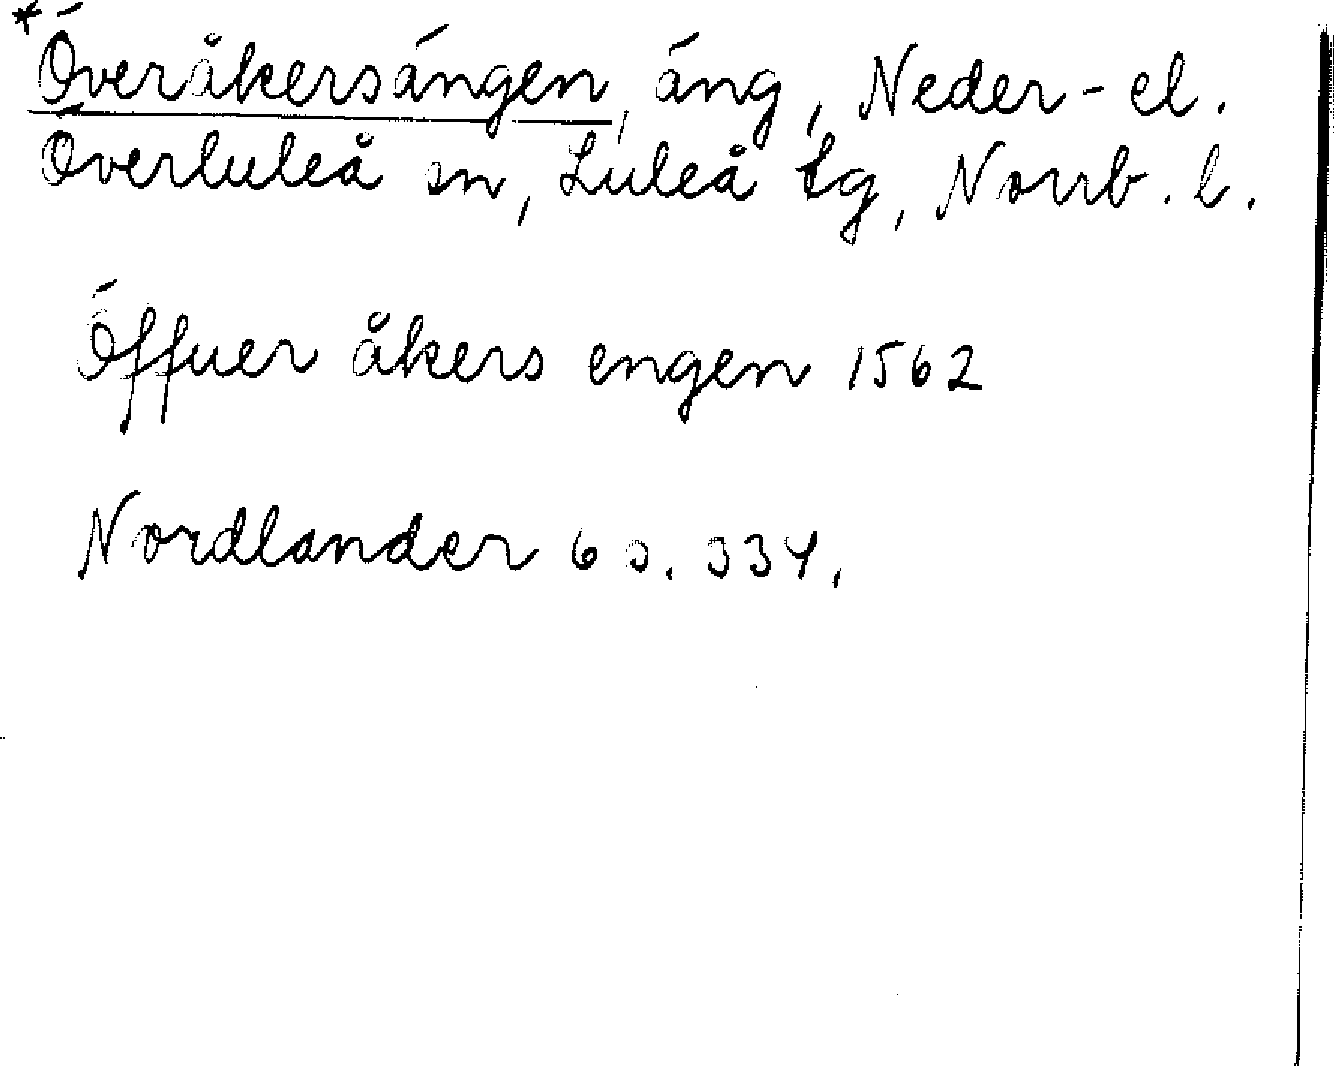 *Överåkersängen, äng, Neder- el.
Överluleå sn, Luleå tg, Norrb. l.
Öffuer åkers engen 1562
Nordlander 6 s. 334.